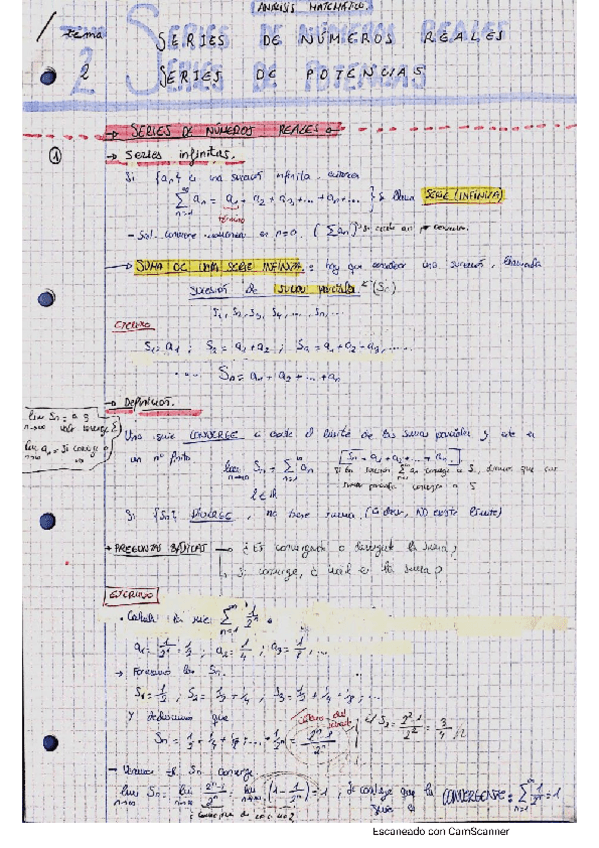 ANÁLISIS MATEMÁTICO
Tema 2
SERIES DE NÚMEROS REALES
SERIES DE POTENCIAS
→ SERIES DE NÚMEROS REALES
①
→ Series infinitas.
Si {aₙ} es una sucesión infinita, entonces
∑ₙ₌₁^∞ aₙ = a₁ + a₂ + a₃ + ... + aₙ + ... } se llama SERIE (INFINITA)
término
n=0. (∑ aₙ)
→ SUMA DE UNA SERIE INFINITA: hay que considerar una sucesión, llamada
sucesión de sumas parciales (Sₙ)
S₁, S₂, S₃, S₄, ... Sₙ, ...
EJEMPLO
S₁ = a₁ ; S₂ = a₁ + a₂ ; S₃ = a₁ + a₂ + a₃, ...
... Sₙ = a₁ + a₂ + ... + aₙ
→ DEFINICIÓN.
Una serie CONVERGE si existe el límite de las sumas parciales y este es
un nº finito
lim n→∞ Sₙ = ∑ₙ₌₁^∞ aₙ
[Sₙ = a₁ + a₂ + ... + aₙ]
l ∈ ℝ
Si {Sₙ} DIVERGE, no tiene suma. (Es decir, NO existe límite)
→ PREGUNTAS BÁSICAS → ¿Es convergente o divergente la suma?
Si converge, ¿cuál es la suma?
EJEMPLO
• Calcula la serie ∑ₙ₌₁^∞ 1/2ⁿ
a₁ = 1/2¹ = 1/2 ; a₂ = 1/4 ; a₃ = 1/8, ...
→ Formamos las Sₙ.
S₁ = 1/2 ; S₂ = 1/2 + 1/4, S₃ = 1/2 + 1/4 + 1/8, ...
Y deducimos que
Sₙ = 1/2 + 1/4 + 1/8 + ... + 1/2ⁿ = (2ⁿ-1)/2ⁿ
ej S₂ = (2²-1)/2² = 3/4
- Veamos si Sₙ converge
lim n→∞ Sₙ = lim n→∞ (2ⁿ-1)/2ⁿ = lim n→∞ (1 - 1/2ⁿ) = 1, se concluye que la serie es CONVERGENTE: ∑ₙ₌₁^∞ 1/2ⁿ = 1
Escaneado con CamScanner